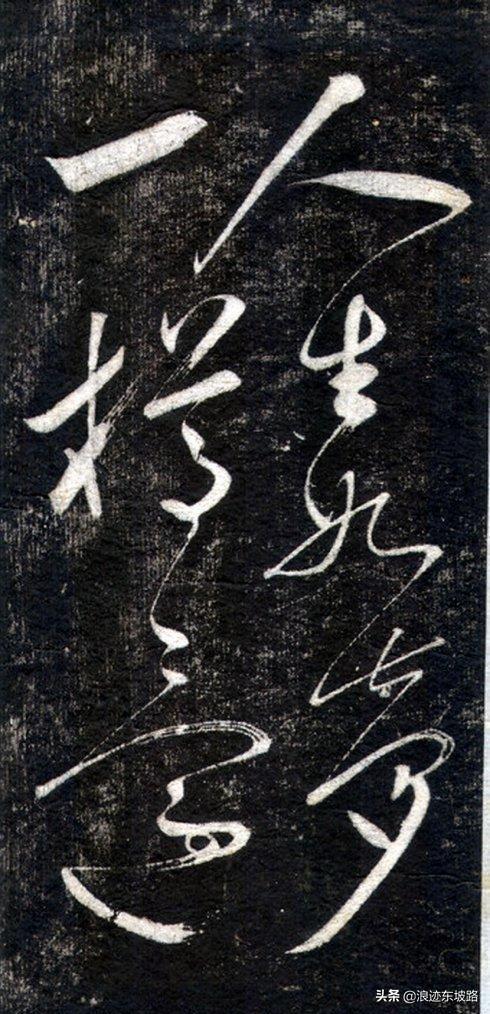 人生如夢
一樽還
头条 @浪迹东坡路